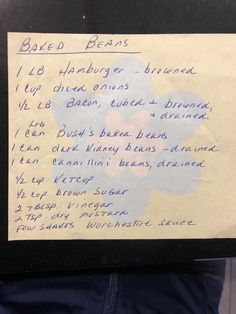 BAKED BEANS
1 LB HAMBURGER - browned
1 CUP diced onions
1/2 LB BACON, cubed & browned,
& drained
LRG
1 CAN BUSH'S baked beans
1 CAN dark Kidney beans - drained
1 CAN cannillini beans, drained
1/2 cup KETCUP
1/2 cup brown SUGAR
2 TBLSP. VINEGAR
2 TSP. dry mustard
FEW SHAKES WORCHESTIRE SAUCE